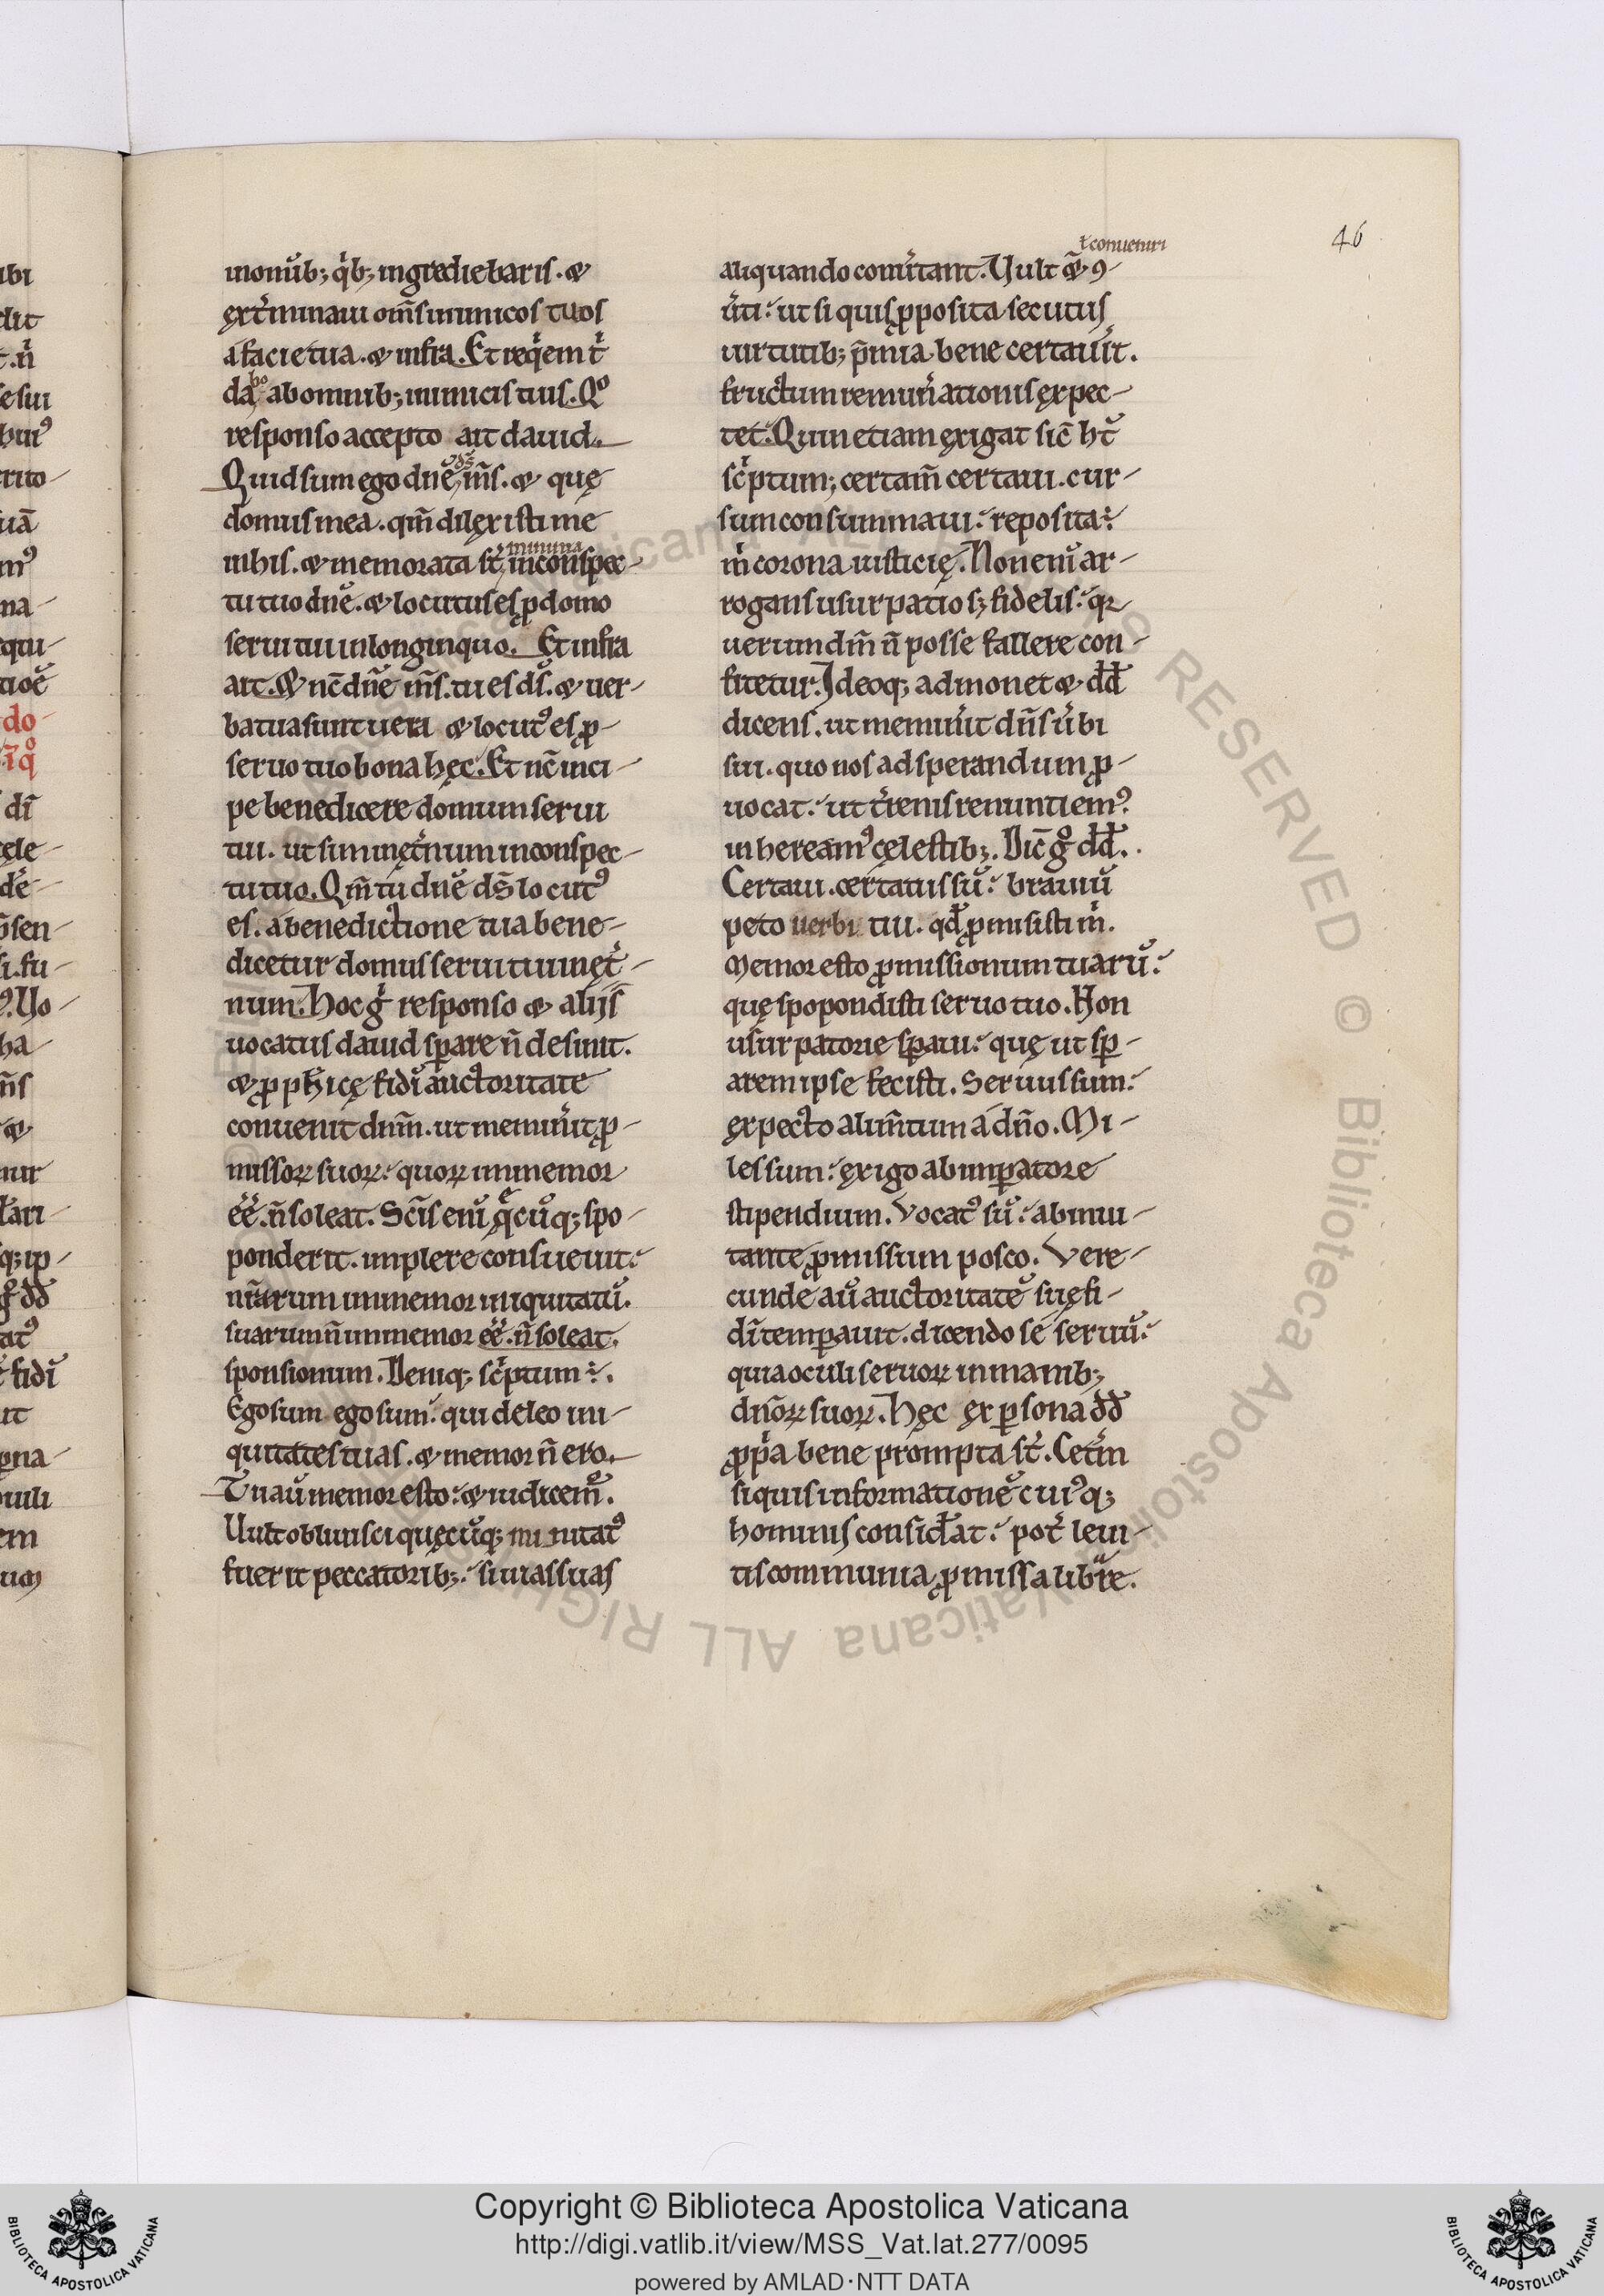 46
in omnib; q̇b; ingrediebaris. &
ext̓minaui om̅s inimicos tuos
a facie tua. & infra. Et req̇em t̓
dabo ab omnib; inimicis tuis. Qͦ
responso accepto ait dauid.
Quid sum ego dn̅e ds̅ m̅s. & quę
domus mea. qm̅ dilexisti me
in his. & memorata st̓ minima in conspec-
tu tuo dn̅e. & locutus es ꝓ domo
serui tui in longinquo. Et infra
ait. & nc̅ dn̅e m̅s. tu es ds̅. & uer-
ba tua sunt uera & locutꝰ es ꝓ
seruo tuo bona hęc. Et nc̅ inci-
pe benedicere domum serui
tui. ut sim in ęt̓num in conspec-
tu tuo. Qm̅ tu dn̅e ds̅ locutꝰ
es. a benedictione tua bene-
dicetur domus serui tui in ęt̓-
num. Hoc g̓ responso & alijs
uocatus dauid sꝑare n̅ desinit.
& ꝓph̅icę fidi̅ auctoritate
conuenit dn̅m. ut memin̓it ꝓ-
missoꝝ suoꝝ. quoꝝ immemor
ee̅. n̅ soleat. Sc̅is eni̅ q̨cu̅q; spo-
ponderit. implere consueuit.
nr̅arum immemor iniquitatu̅.
suarum n̅ immemor ee̅. n̅ soleat.
sponsionum. Deniq; sc̓ptum ÷.
Ego sum ego sum. qui deleo ini-
quitates tuas. & memor n̅ ero.
Tu au̅ memor esto. & iudicem̓.
Uult obliuisci quęcu̅q; minitatꝰ
fuerit peccatorib;. si uias suas
ł conueniri
aliquando comu̓tant. Uult & ꝯ-
u̓ti. ut si quis ꝓposita secutus
uirtutib; p̅mia bene certau̓it.
fructum remun̓ationis expec-
tet. Quin etiam exigat sic̅ ht̅
sc̓ptum; certam̅ certaui. cur-
sum consummaui. reposita ÷
m̓ corona iusticię. Non eni̅ ar-
rogans usurpatio s; fidelis. q̨
uerum dm̅ n̅ posse fallere con-
fitetur. Ideoq; admonet & dd̅
dicens. ut memin̓it dn̅s u̓bi
sui. quo nos ad sperandum ꝓ-
uocat. ut t̓renis renuntiemꝰ.
inhereamꝰ cęlestib;. Dic̅ g̊ dd̅.
Certaui. certatus su̅. brauiu̅
peto uerbi tui. qd̅ ꝓmisisti m̓.
Memor esto ꝓmissionum tuaru̅.
quę spopondisti seruo tuo. Non
usurpatorie sꝑaui. quę ut sꝑ-
arem ipse fecisti. Seruus sum.
expecto alim̅tum a dn̅o. Mi-
les sum. exigo ab imꝑatore
stipendium. Vocatꝰ su̅. ab inui-
tante ꝓmissum posco. Vere-
cunde au̅ auctoritate̅ suę fi-
di̅ temꝑauit. dicendo se seruu̅.
quia oculi seruoꝝ in manib;
dn̅oꝝ suoꝝ. Hęc ex ꝑsona dd̅
ꝓp̓a bene prompta st̓. Cet̓m
si quis informatione̅ cuiꝰq;
hominis consid̓at. pot̓ leui-
tis communia ꝓmissa libr̅e.
Copyright © Biblioteca Apostolica Vaticana
http://digi.vatlib.it/view/MSS_Vat.lat.277/0095
powered by AMLAD·NTT DATA
BIBLIOTECA APOSTOLICA VATICANA
BIBLIOTECA APOSTOLICA VATICANA